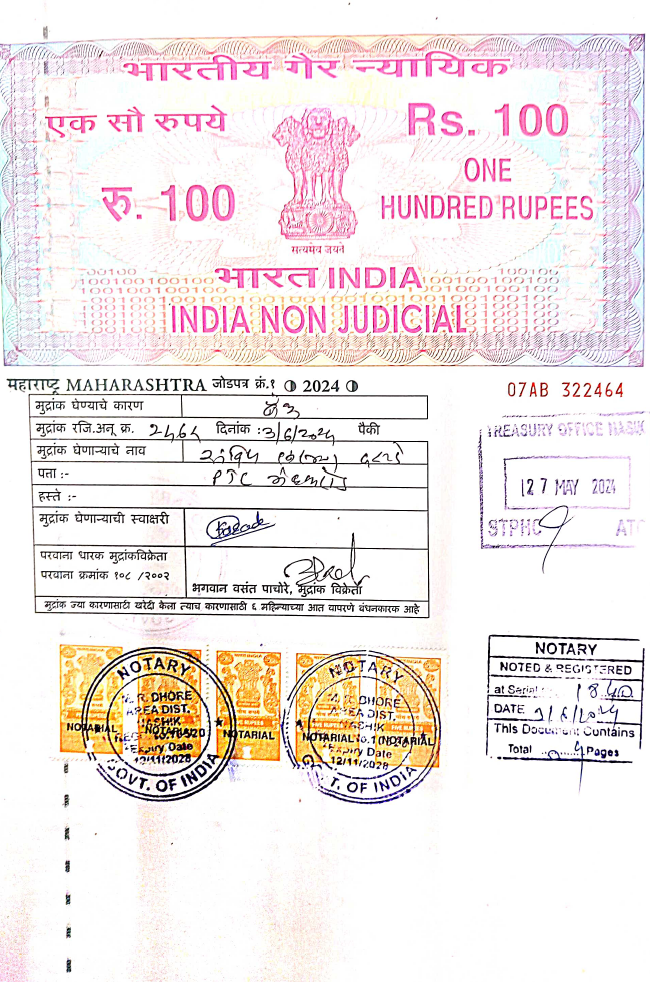 भारतीय गैर न्यायिक
एक सौ रुपये
Rs. 100
रु. 100
ONE
HUNDRED RUPEES
सत्यमेव जयते
भारत INDIA
INDIA NON JUDICIAL
महाराष्ट्र MAHARASHTRA जोडपत्र क्रं.१ 2024
07AB 322464
मुद्रांक घेण्याचे कारण
मुद्रांक रजि.अनू क्र. दिनांक : 3/6/2024 पैकी
मुद्रांक घेणाऱ्याचे नाव
पता :-
हस्ते :-
मुद्रांक घेणाऱ्याची स्वाक्षरी
परवाना धारक मुद्रांकविक्रेता
परवाना क्रमांक १०८ /२००२
भगवान वसंत पाचोरे, मुद्रांक विक्रेता
मुद्रांक ज्या कारणासाठी खरेदी केला त्याच कारणासाठी ६ महिन्याच्या आत वापरणे बंधनकारक आहे
TREASURY OFFICE
27 MAY 2024
NOTARY
DHORE
AREA DIST.
NASHIK
NOTARIAL
NOTARIAL
Expiry Date
12/11/2028
GOVT. OF INDIA
NOTARIAL
NOTARY
DHORE
AREA DIST.
NOTARIAL
NOTARIAL
Expiry Date
12/11/2028
OF INDIA
NOTARY
NOTED & REGISTERED
at Serial
DATE 3/6/2024
This Document Contains
Total Pages